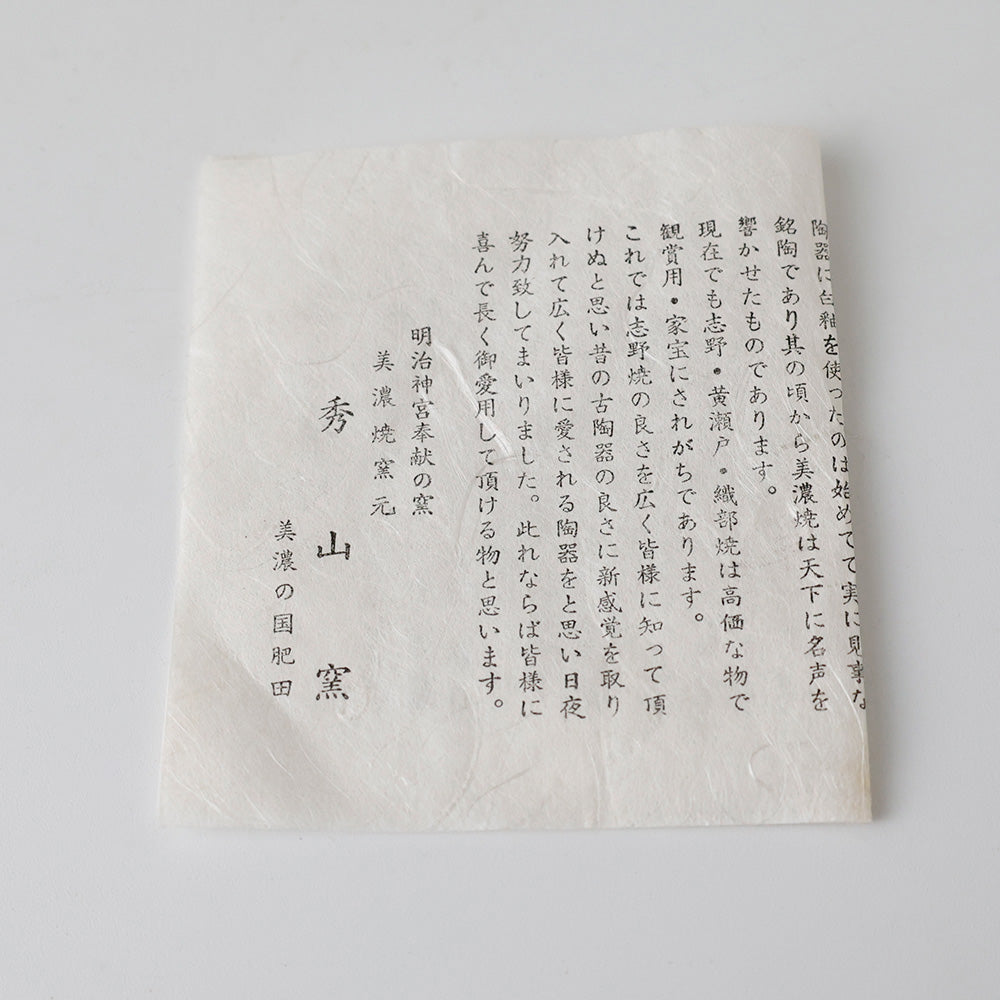 陶器に白釉を使ったのは始めてで実に見事な
銘陶であり其の頃から美濃焼は天下に名声を
響かせたものであります。
現在でも志野・黄瀬戸・織部焼は高価な物で
観賞用・家宝にされがちであります。
これでは志野焼の良さを広く皆様に知って頂
けぬと思い昔の古陶器の良さに新感覚を取り
入れて広く皆様に愛される陶器をと思い日夜
努力致してまいりました。此れならば皆様に
喜んで長く御愛用して頂ける物と思います。
明治神宮奉献の窯
美濃焼窯元
秀山窯
美濃の国肥田